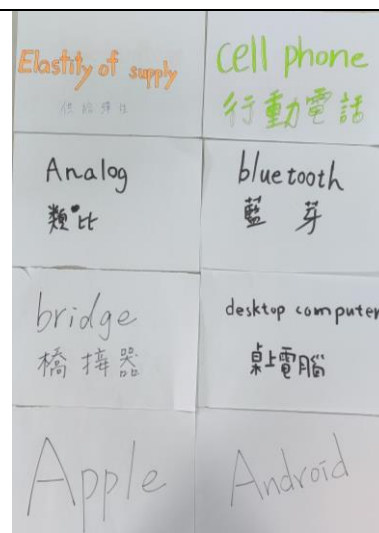 Elastity of supply
供給彈性
cell phone
行動電話
Analog
類比
bluetooth
藍芽
bridge
橋接器
desktop computer
桌上電腦
Apple
Android